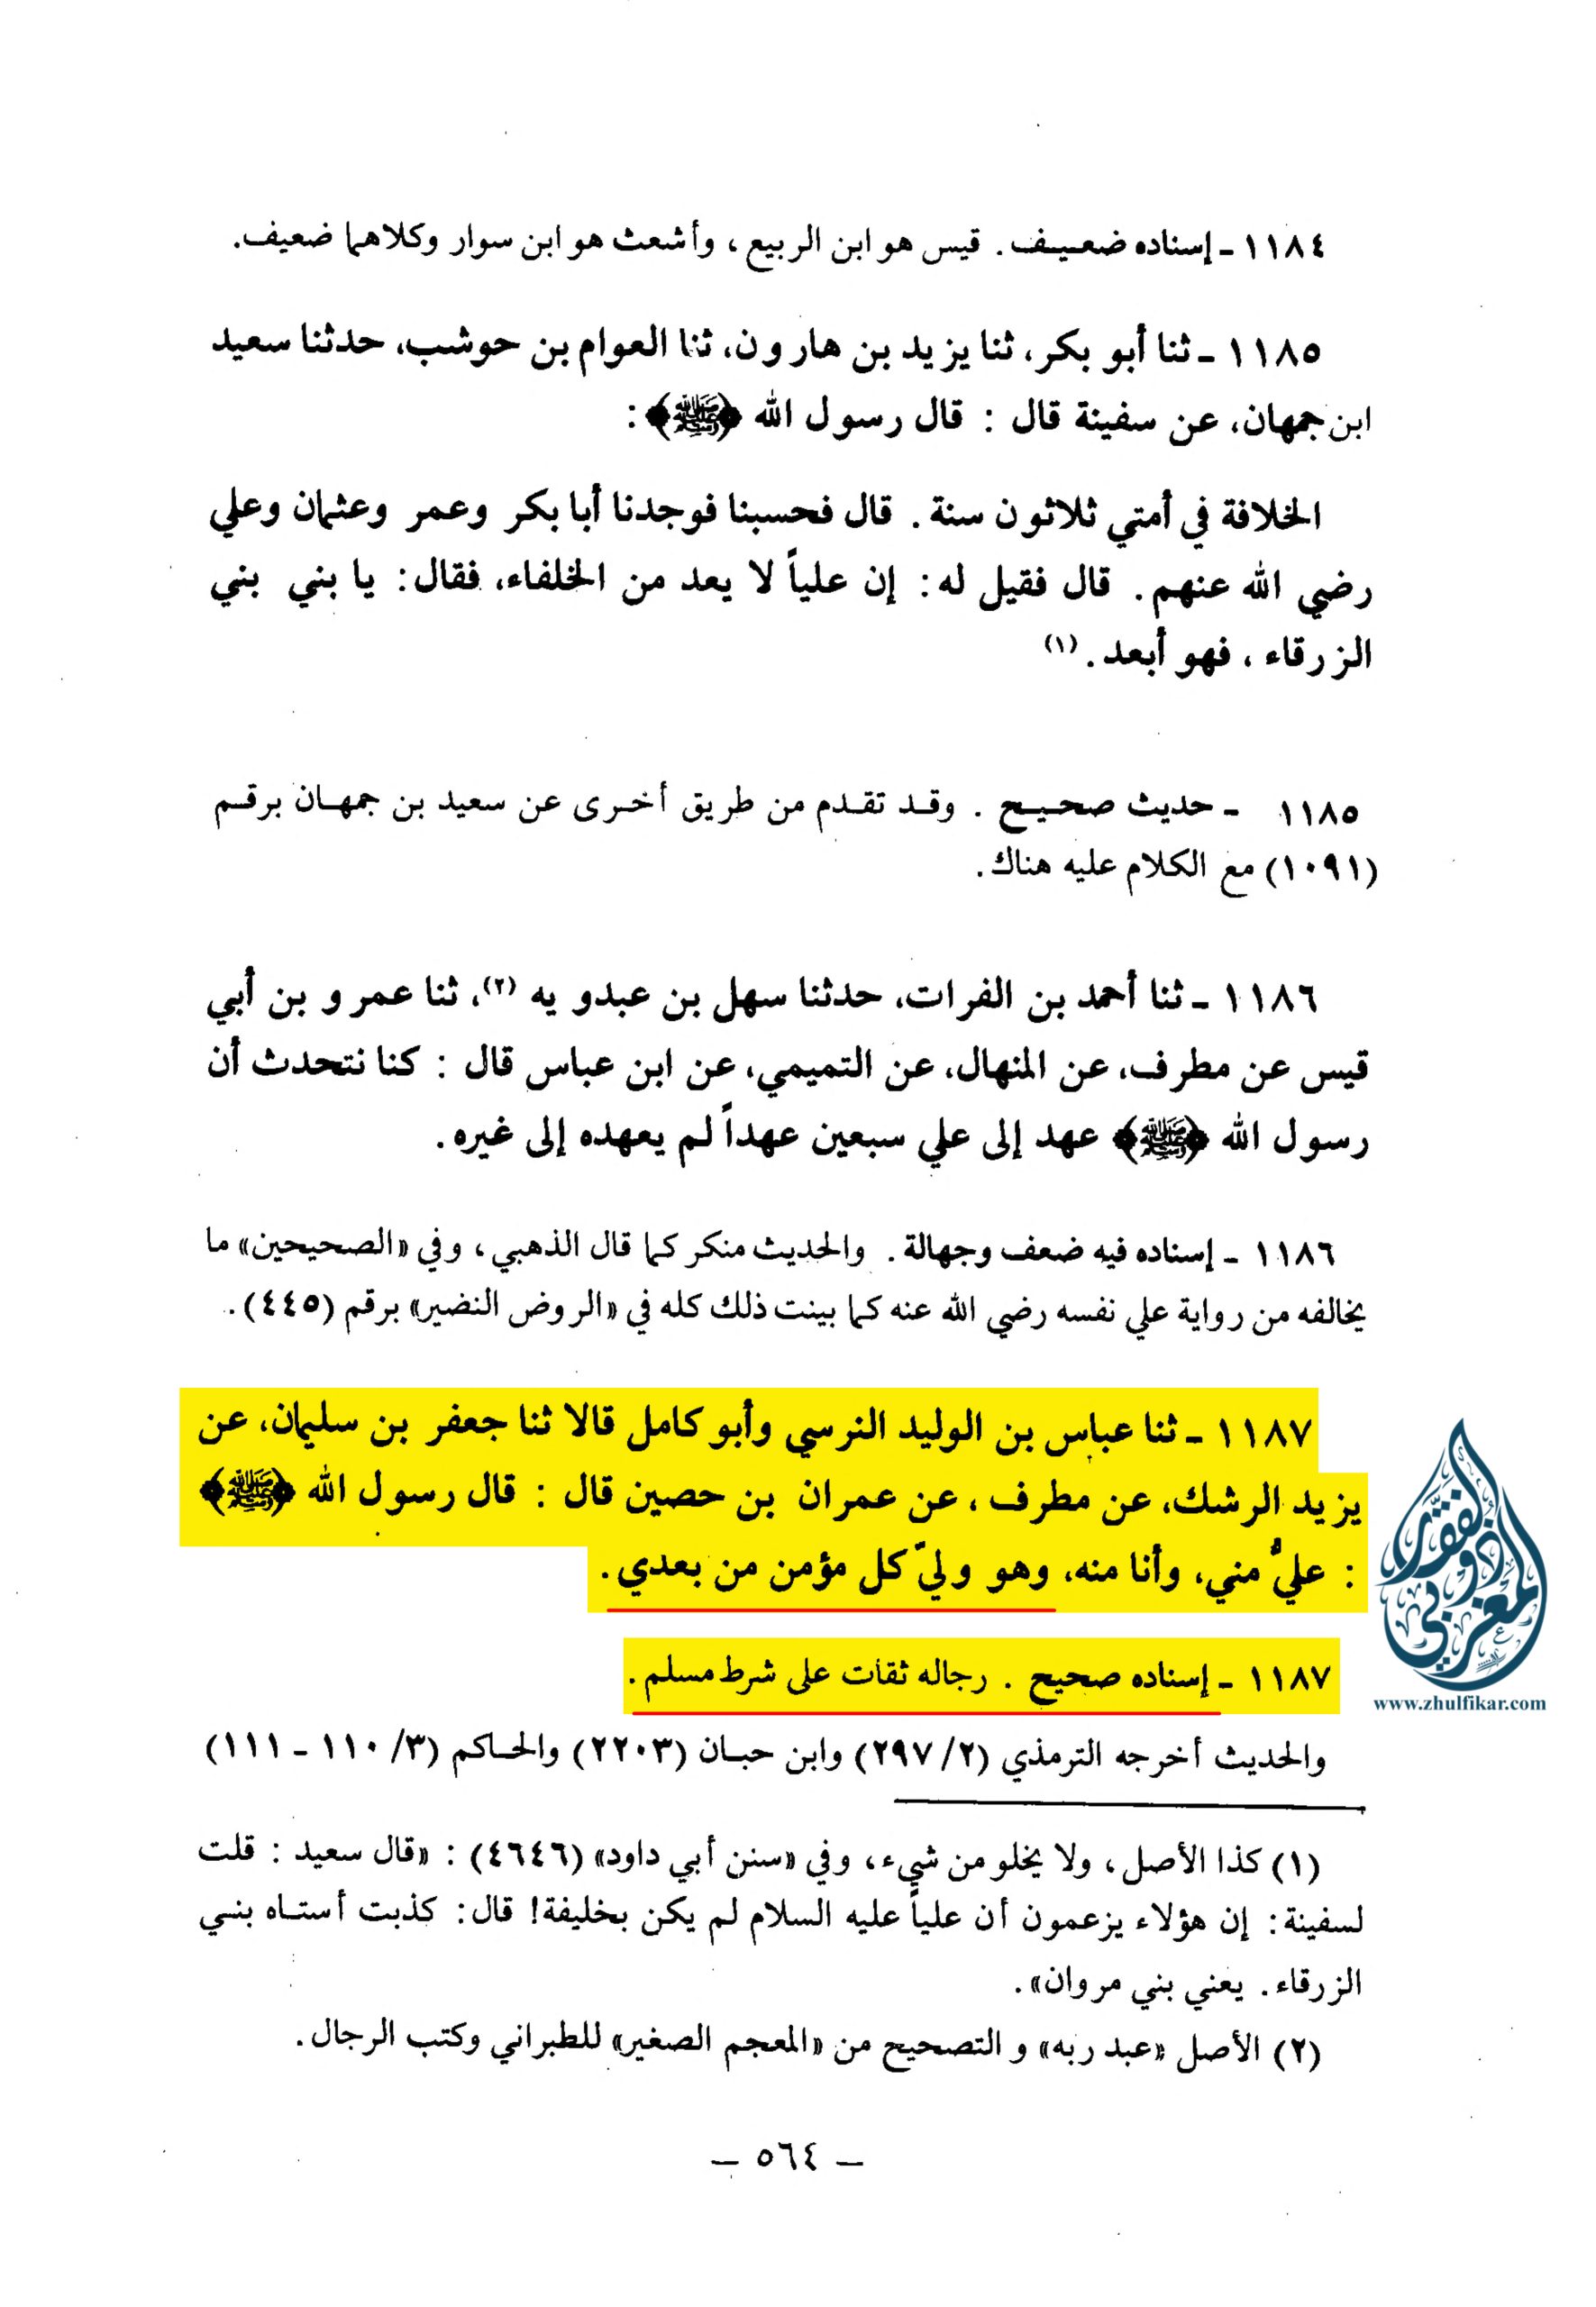 ١١٨٤ - إسناده ضعيف . قيس هو ابن الربيع ، وأشعث هو ابن سوار وكلاهما ضعيف .
١١٨٥ - ثنا أبو بكر، ثنا يزيد بن هارون، ثنا العوام بن حوشب، حدثنا سعيد
ابن جمهان، عن سفينة قال : قال رسول الله ﴿ﷺ﴾ :
الخلافة في أمتي ثلاثون سنة . قال فحسبنا فوجدنا أبا بكر وعمر وعثمان وعلي
رضي الله عنهم . قال فقيل له : إن علياً لا يعد من الخلفاء، فقال : يا بني بني
الزرقاء ، فهو أبعد . (١)
١١٨٥ - حديث صحيح . وقد تقدم من طريق أخرى عن سعيد بن جمهان برقم
(١٠٩١) مع الكلام عليه هناك .
١١٨٦ - ثنا أحمد بن الفرات، حدثنا سهل بن عبدو يه (٢)، ثنا عمرو بن أبي
قيس عن مطرف، عن المنهال، عن التميمي، عن ابن عباس قال : كنا نتحدث أن
رسول الله ﴿ﷺ﴾ عهد إلى علي سبعين عهداً لم يعهده إلى غيره .
١١٨٦ - إسناده فيه ضعف وجهالة . والحديث منكر كما قال الذهبي ، وفي «الصحيحين» ما
يخالفه من رواية علي نفسه رضي الله عنه كما بينت ذلك كله في «الروض النضير» برقم (٤٤٥) .
١١٨٧ - ثنا عباس بن الوليد النرسي وأبو كامل قالا ثنا جعفر بن سليمان، عن
يزيد الرشك، عن مطرف ، عن عمران بن حصين قال : قال رسول الله ﴿ﷺ﴾
: عليٌّ مني، وأنا منه، وهو وليّ كل مؤمن من بعدي .
١١٨٧ - إسناده صحيح . رجاله ثقات على شرط مسلم .
والحديث أخرجه الترمذي (٢٩٧/٢) وابن حبان (٢٢٠٣) والحاكم (١١٠/٣ - ١١١)
(١) كذا الأصل ، ولا يخلو من شيء ، وفي «سنن أبي داود» (٤٦٤٦) : «قال سعيد : قلت
لسفينة : إن هؤلاء يزعمون أن علياً عليه السلام لم يكن بخليفة! قال : كذبت أستاه بني
الزرقاء . يعني بني مروان» .
(٢) الأصل «عبد ربه» و التصحيح من «المعجم الصغير» للطبراني وكتب الرجال .
– ٥٦٤ –
www.zhulfikar.com